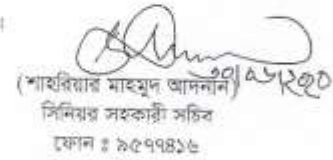 (শাহরিয়ার মাহমুদ আদনান)
সিনিয়র সহকারী সচিব
ফোন ঃ ৯৫৭৭৪১৬